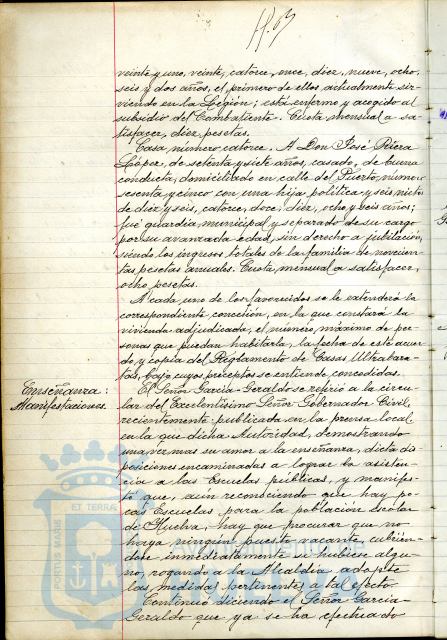 veinte y uno, veinte, catorce, once, diez, nueve, ocho,
seis y dos años, el primero de ellos actualmente sir-
viendo en la Legión; está enfermo y acogido al
subsidio del Combatiente. Cuota mensual a sa-
tisfacer, diez pesetas.
Casa número catorce. A Don José Riera
López, de setenta y siete años, casado, de buena
conducta, domiciliado en calle del Puerto, número
sesenta y cinco con una hija política y seis nietos
de diez y seis, catorce, doce, diez, ocho y seis años;
fué guardia municipal y separado de su cargo
por su avanzada edad, sin derecho a jubilación,
siendo los ingresos totales de la familia de novecien-
tas pesetas anuales. Cuota mensual a satisfacer,
ocho pesetas.
A cada uno de los favorecidos se le extenderá la
correspondiente concesión, en la que constará la
vivienda adjudicada, el número máximo de per-
sonas que puedan habitarla, la fecha de este acuer-
do, y copia del Reglamento de Casas Ultrabara-
tas, bajo cuyos preceptos se entiende concedidas.
Enseñanza:
Manifestaciones.
El Señor García-Geraldo se refirió a la circu-
lar del Excelentísimo Señor Gobernador Civil,
recientemente publicada en la prensa local,
en la que dicha Autoridad, demostrando
una vez mas su amor a la enseñanza, dicta dis-
posiciones encaminadas a lograr la asisten-
cia a las Escuelas públicas, y manifes-
tó que, aún reconociendo que hay po-
cas Escuelas para la población escolar
de Huelva, hay que procurar que no
haya ningún puesto vacante, cubrién-
dose inmediatamente si hubiese algu-
no, rogando a la Alcaldía adopte
las medidas pertinentes a tal efecto.
Continuó diciendo el Señor García-
Geraldo que ya se ha efectuado
PORTUS MARIS ET TERRAE